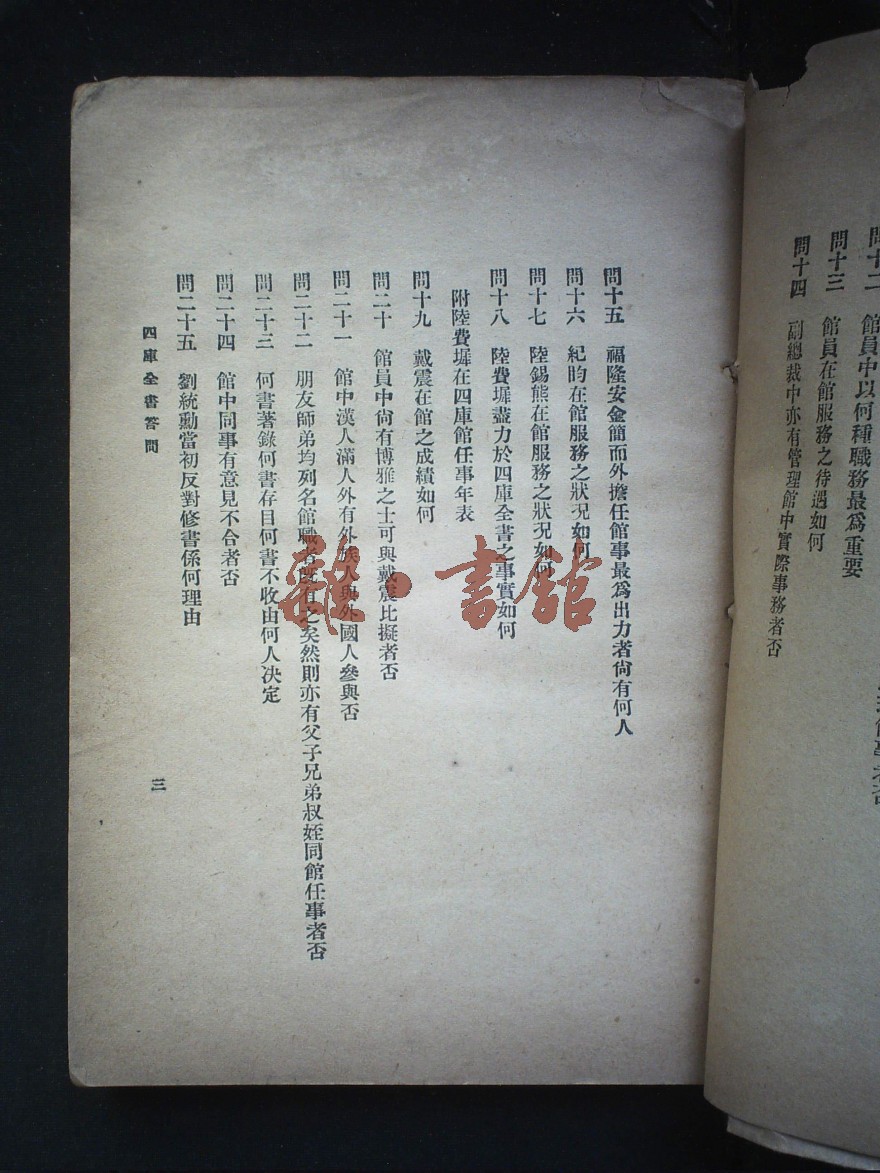 問十二　館員中以何種職務最爲重要
問十三　館員在館服務之待遇如何
問十四　副總裁中亦有管理館中實際事務者否
問十五　福隆安金簡而外擔任館事最爲出力者尙有何人
問十六　紀昀在館服務之狀況如何
問十七　陸錫熊在館服務之狀況如何
問十八　陸費墀盡力於四庫全書之事實如何
附陸費墀在四庫館任事年表
問十九　戴震在館之成績如何
問二十　館員中尙有博雅之士可與戴震比擬者否
問二十一　館中漢人滿人外有外族人與外國人參與否
問二十二　朋友師弟均列名館職者旣有之矣然則亦有父子兄弟叔姪同館任事者否
問二十三　何書著錄何書存目何書不收由何人決定
問二十四　館中同事有意見不合者否
問二十五　劉統勳當初反對修書係何理由
四庫全書答問
三
書館